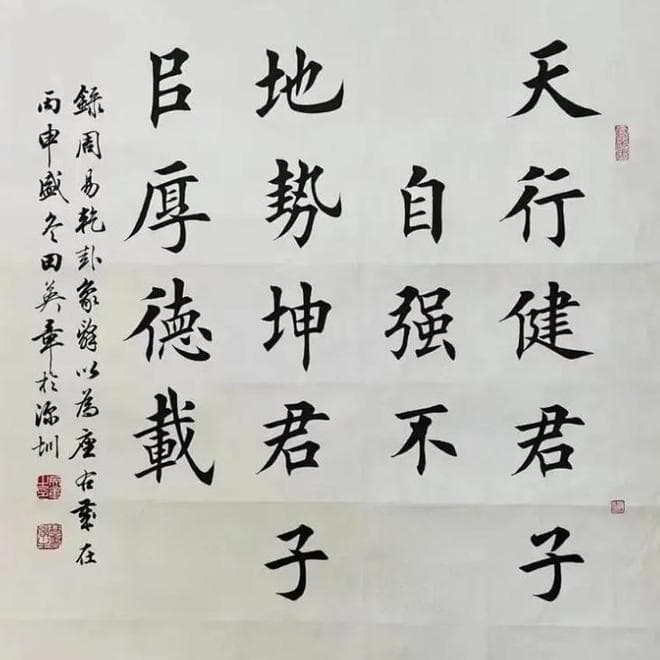 天行健君子
自强不
地勢坤君子
㠯厚德載
録周易乾卦象辭以為座右歲在
丙申盛冬田英章於深圳